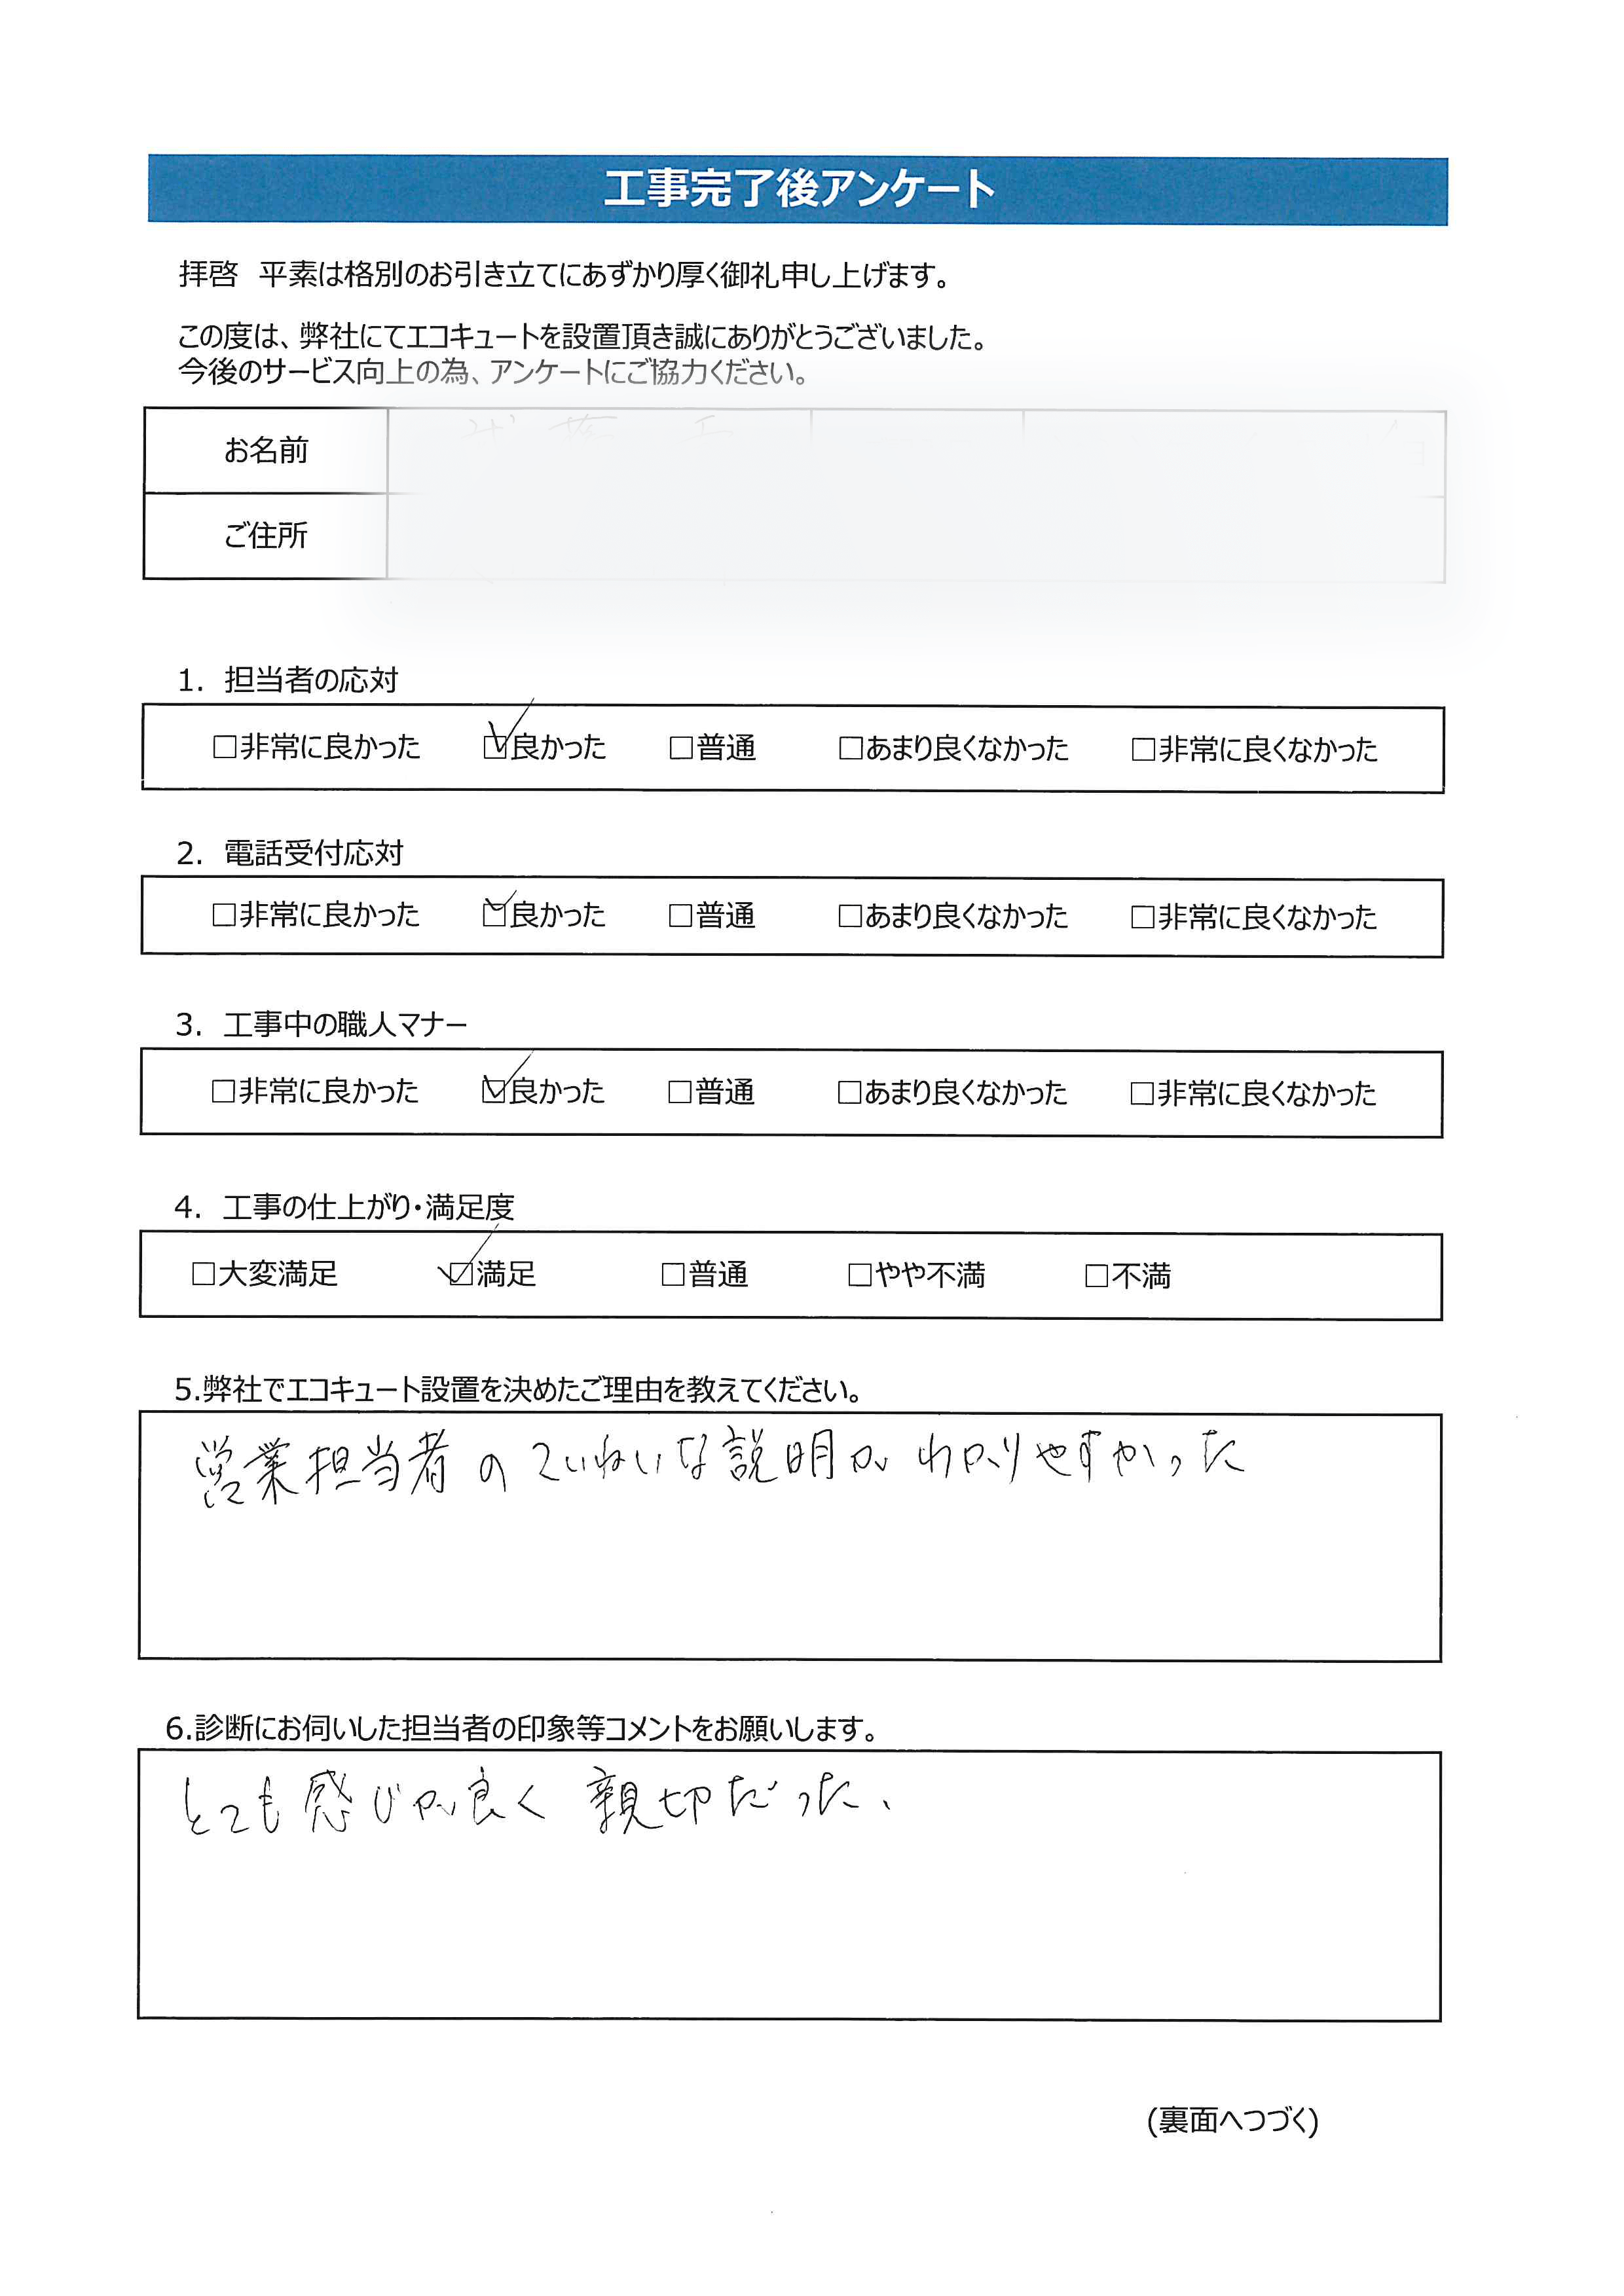 工事完了後アンケート
拝啓　平素は格別のお引き立てにあずかり厚く御礼申し上げます。
この度は、弊社にてエコキュートを設置頂き誠にありがとうございました。
今後のサービス向上の為、アンケートにご協力ください。
お名前
ご住所
1. 担当者の応対
□非常に良かった ☑良かった □普通 □あまり良くなかった □非常に良くなかった
2. 電話受付応対
□非常に良かった ☑良かった □普通 □あまり良くなかった □非常に良くなかった
3. 工事中の職人マナー
□非常に良かった ☑良かった □普通 □あまり良くなかった □非常に良くなかった
4. 工事の仕上がり・満足度
□大変満足 ☑満足 □普通 □やや不満 □不満
5.弊社でエコキュート設置を決めたご理由を教えてください。
営業担当者のていねいな説明がわかりやすかった
6.診断にお伺いした担当者の印象等コメントをお願いします。
とても感じが良く親切だった、
(裏面へつづく)